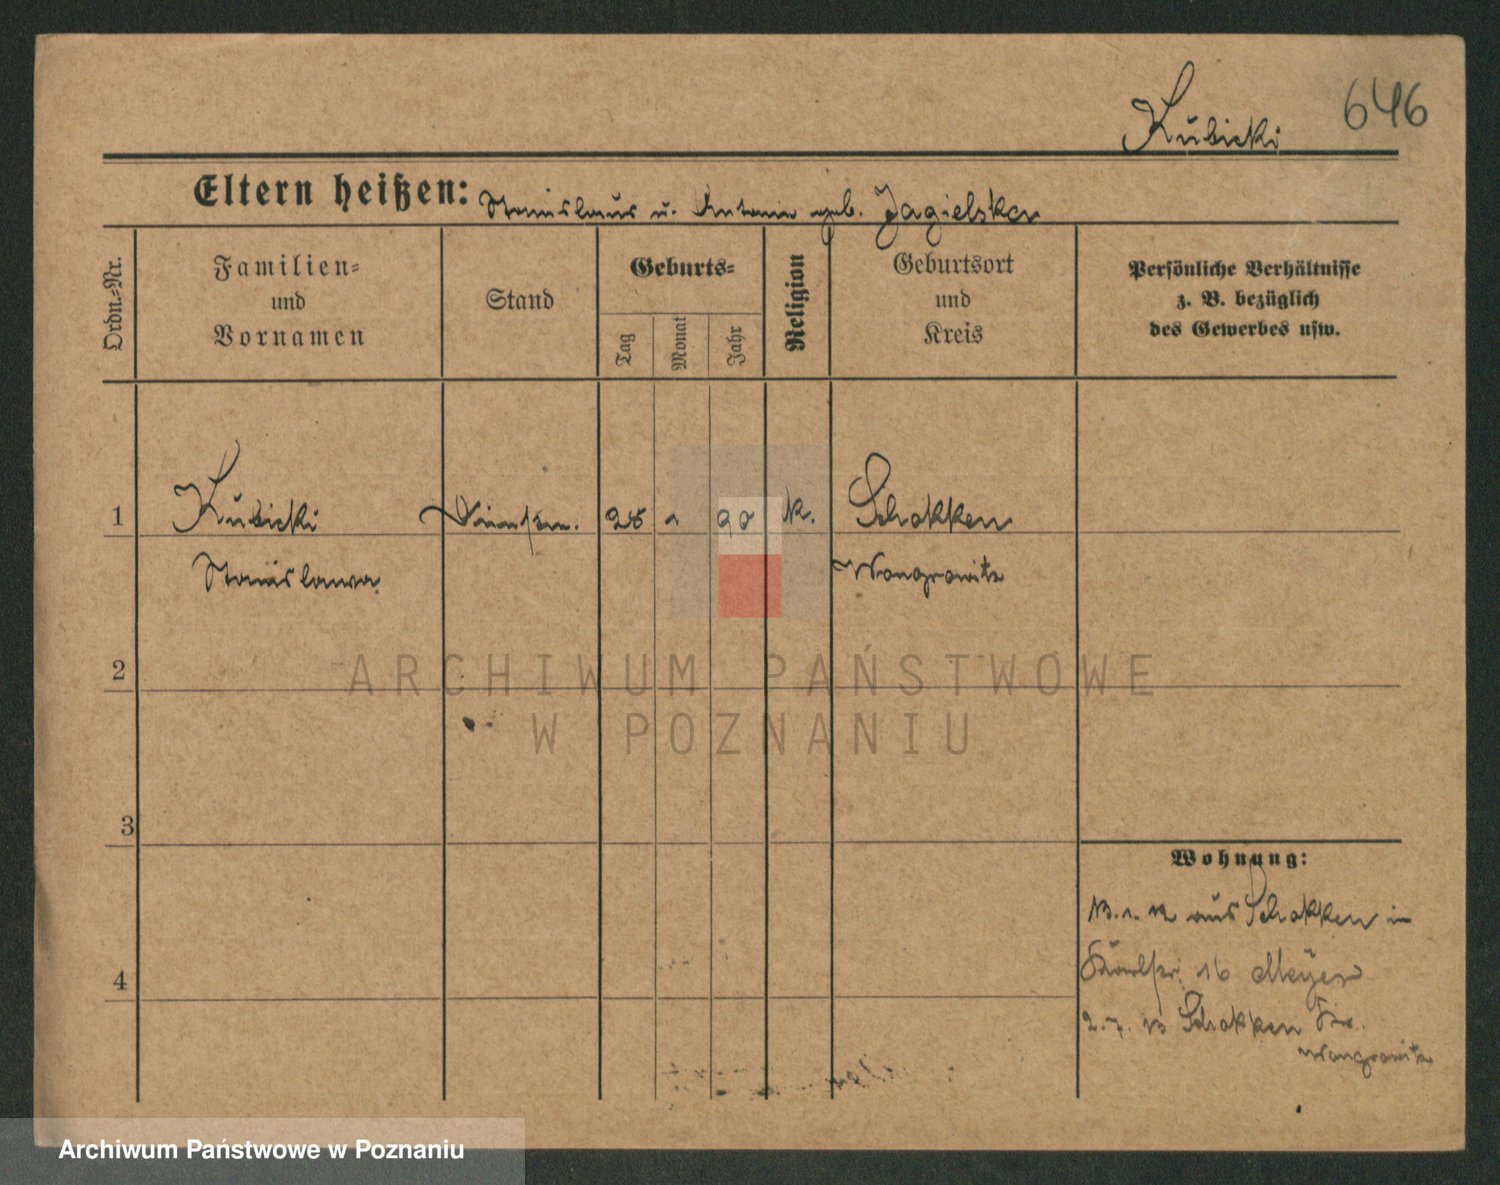 Kubicki 646
Eltern heißen: Stanislaus u. Antonie geb. Jagielska
Ordn.-Nr.
Familien-
und
Vornamen
Stand
Geburts-
Tag
Monat
Jahr
Religion
Geburtsort
und
Kreis
Persönliche Verhältnisse
z. B. bezüglich
des Gewerbes usw.
1 Kubicki 28 90 k. Schokken
Stanislawa Wongrowitz
2
3
4
Wohnung:
aus Schokken in
16 Meyer
2.7. 13 Schokken Kr.
Wongrowitz
ARCHIWUM PAŃSTWOWE
W POZNANIU
Archiwum Państwowe w Poznaniu